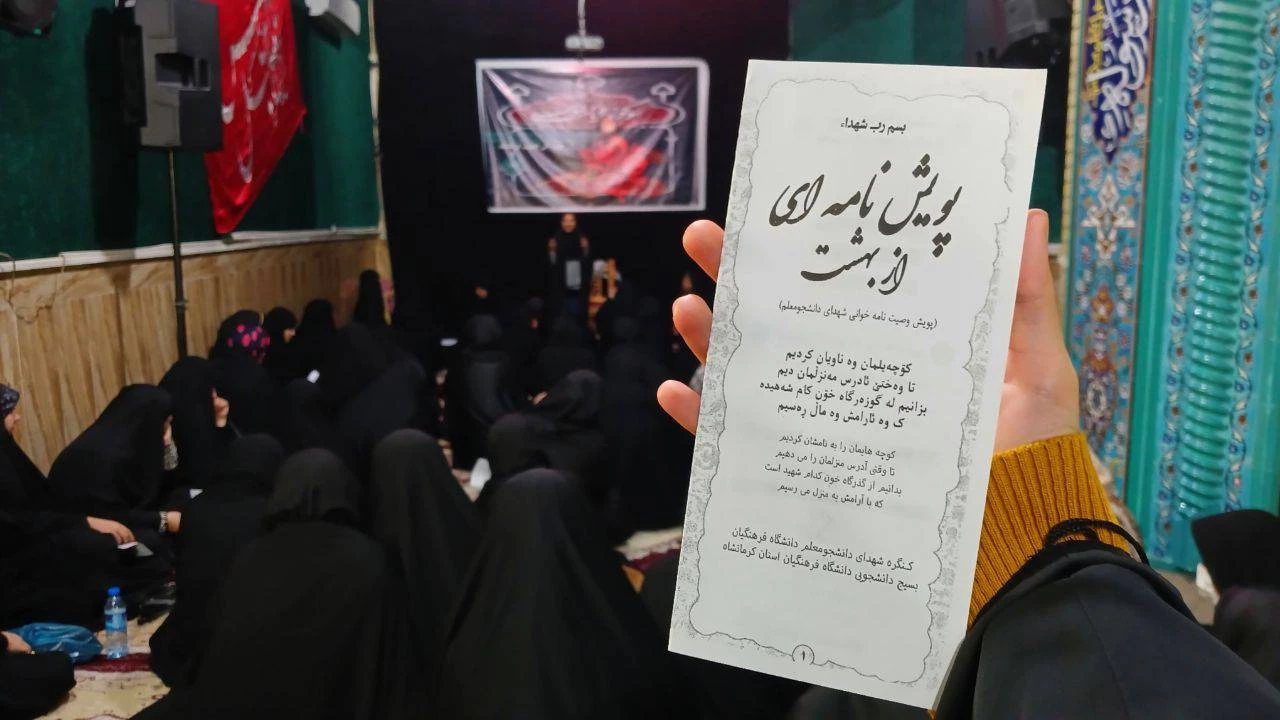 بسم رب شهداء
پویش نامه ای
از بهشت
(پویش وصیت نامه خوانی شهدای دانشجومعلم)
کۆچه‌یلمان وه ناویان کردیم
تا وه‌ختێ ئادرس مه‌نزڵمان دیم
بزانیم له گوزه‌رگاه خۆن کام شه‌هیده
ک وه ئارامش وه ماڵ ڕه‌سیم
کوچه هایمان را به نامشان کردیم
تا وقتی آدرس منزلمان را می دهیم
بدانیم از گذرگاه خون کدام شهید است
که با آرامش به منزل می رسیم
کنگره شهدای دانشجومعلم دانشگاه فرهنگیان
بسیج دانشجویی دانشگاه فرهنگیان استان کرمانشاه
۱